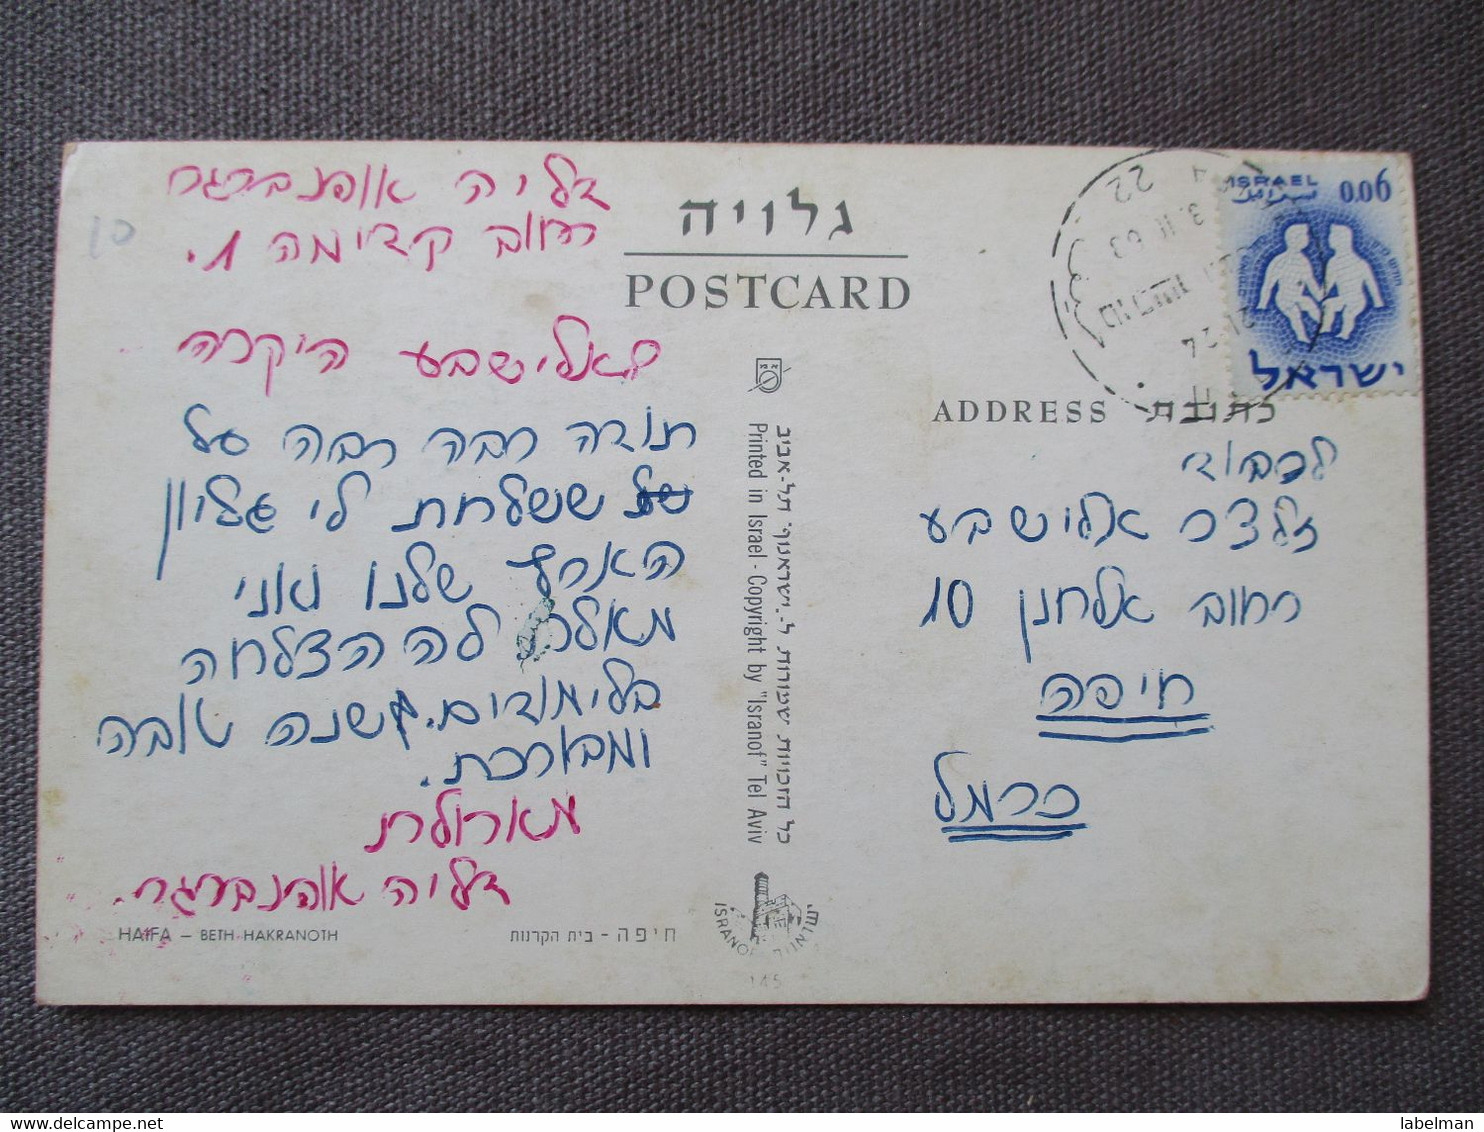 דליה אופנברגר
רחוב קדימה 1.
לאלישבע היקרה
תודה רבה רבה על
ששלחת לי גליון
הארץ שלנו ואני
מאחלת לה הצלחה
בלימודים. שנה טובה
ומבורכת.
דליה אופנברגר.
HAIFA – BETH HAKRANOTH
חיפה - בית הקרנות
גלויה
POSTCARD
כל הזכויות שמורות ל-"ישראנוף" תל-אביב
Printed in Israel - Copyright by "Isranof" Tel Aviv
ISRANOF
145
ISRAEL
0.06
ישראל
ADDRESS כתובת
לכבוד
זלצר אלישבע
רחוב אלחנן 10
חיפה
כרמל
10
labelman